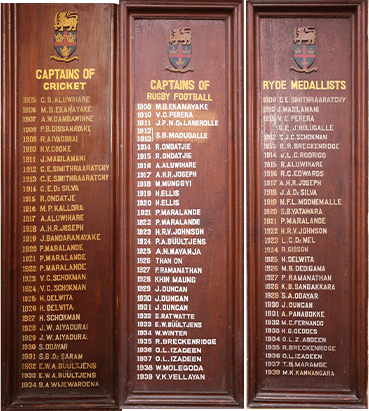 CAPTAINS OF
CRICKET
1905 C.R. ALUWIHARE
1906 M.B. EKANAYAKE
1907 A.W. DAMBAWINNE
1908 P.B. DISSANAYAKE
1909 R. AIYADURAI
1910 H.V. COOKE
1911 J. MASILAMANI
1912 C.E. SMITHRAARATCHY
1913 C.E. SMITHRAARATCHY
1914 C.E. DE SILVA
1915 R. ONDATJE
1916 M.P. KALLORA
1917 A. ALUWIHARE
1918 A.H.R. JOSEPH
1919 J. BANDARANAYAKE
1920 P. MARALANDE
1921 P. MARALANDE
1922 P. MARALANDE
1923 V.C. SCHOKMAN
1924 V.C. SCHOKMAN
1925 H. DELWITA
1926 H. DELWITA
1927 H. SCHOKMAN
1928 J.W. AIYADURAI
1929 J.W. AIYADURAI
1930 S. ODAYAR
1931 S.B. DE SARAM
1932 E.W.A. BÜÜLTJENS
1933 E.W.A. BÜÜLTJENS
1934 B.A. WIJEWARDENA
CAPTAINS OF
RUGBY FOOTBALL
1908 M.B. EKANAYAKE
1910 V.C. PERERA
1911 J.P.N. DE LANEROLLE
1912
1913 S.B. MADUGALLE
1914 R. ONDATJIE
1915 R. ONDATJIE
1916 A. ALUWIHARE
1917 A.H.R. JOSEPH
1918 M. MUNGGYI
1919 H. ELLIS
1920 H. ELLIS
1921 P. MARALANDE
1922 P. MARALANDE
1923 H.R.V. JOHNSON
1924 P.A. BÜÜLTJENS
1925 A.N. MAYANJA
1926 THAN ON
1927 P. RAMANATHAN
1928 KHIN MAUNG
1929 J. DUNCAN
1930 J. DUNCAN
1931 J. DUNCAN
1932 S. RATWATTE
1933 E.W. BÜÜLTJENS
1934 W. WINTER
1935 R. BRECKENRIDGE
1936 O.L. IZADEEN
1937 O.L. IZADEEN
1938 W. MOLEGODA
1939 V.K. VELLAYAN
RYDE MEDALLISTS
1909 C.E. SMITHRAARATCHY
1910 J. MASILAMANI
V.C. PERERA
J. HULUGALLE
S.J.C. SCHOKMAN
1913 R.R. BRECKENRIDGE
1914 J.L.C. RODRIGO
1915 R. ALUWIHARE
1916 R.C. EDWARDS
1917 A.H.R. JOSEPH
1918 J.A. DE SILVA
1919 N.F.L. MOONEMALLE
1920 S.B. YATAWARA
1921 P. MARALANDE
1922 H.R.V. JOHNSON
1923 L.C. DE MEL
1924 R. GIBSON
1925 H. DELWITA
1926 M.B. DEDIGAMA
1927 P. RAMANATHAN
1928 K.B. SANGAKKARA
1929 S.A. ODAYAR
1930 J. DUNCAN
1931 A. PANABOKKE
1932 M.C. FERNANDO
1933 H.G. GEDDES
1934 O.L.Z. ABDEEN
1935 R. BRECKENRIDGE
1936 O.L. IZADEEN
1937 T.B. MARAMBE
1939 M.K. KANNANGARA